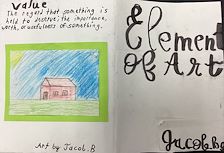 Value
The regard that something is
held to deserve; the importance,
worth, or usefulness of something.
Art by Jacob.B
Element
Of Art
Jacob.B